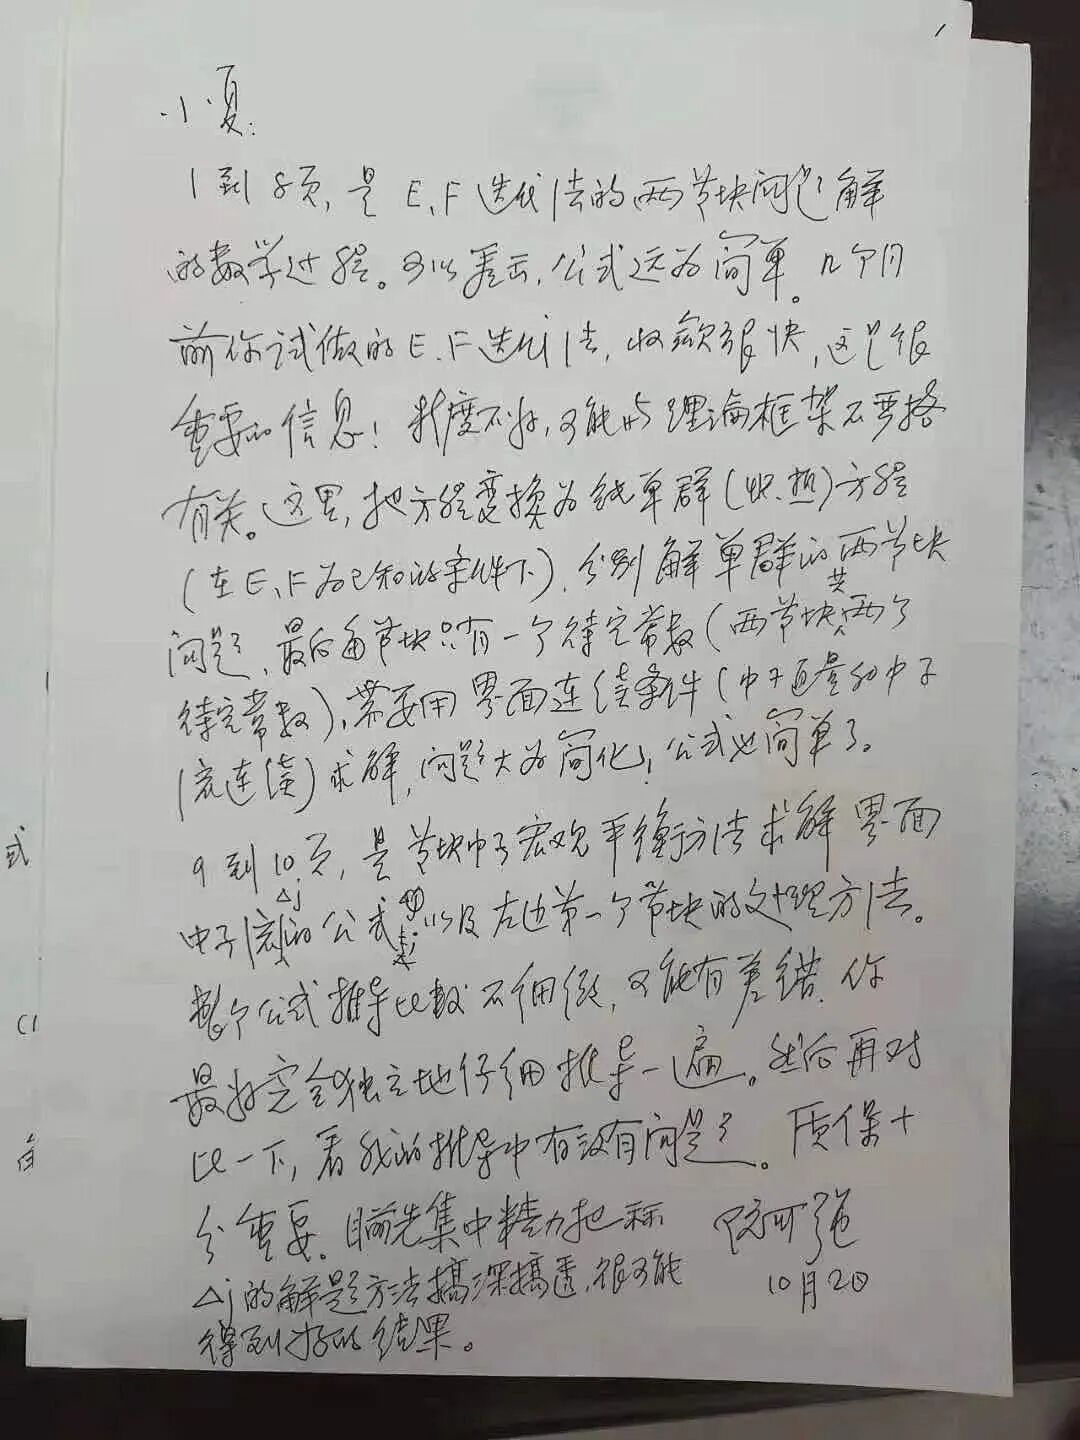 1
小夏:
1到8页,是E、F迭代法的两节块问题解
的数学过程。可以看出,公式远为简单。几个月
前你试做的E、F迭代法,收敛很快,这是很
重要的信息!精度不好,可能与理论框架不严格
有关。这里,把方程变换为纯单群(快、热)方程
(在E、F为已知的条件下),分别解单群的两节块
问题,最后每节块只有一个待定常数(两节块共两个
待定常数),需要用界面连续条件(中子通量和中子
流连续)求解,问题大为简化,公式也简单了。
9到10页,是节块中子宏观平衡方法求解界面
中子流Δj的公式以及左边第一个节块的处理方法。
整个公式推导比较不细致,可能有差错,你
最好完全独立地仔细推导一遍。然后再对
比一下,看我的推导中有没有问题。质保十
分重要。目前先集中精力把
Δj的解题方法搞深搞透,很可能
得到好的结果。
阮可强
10月2日
式